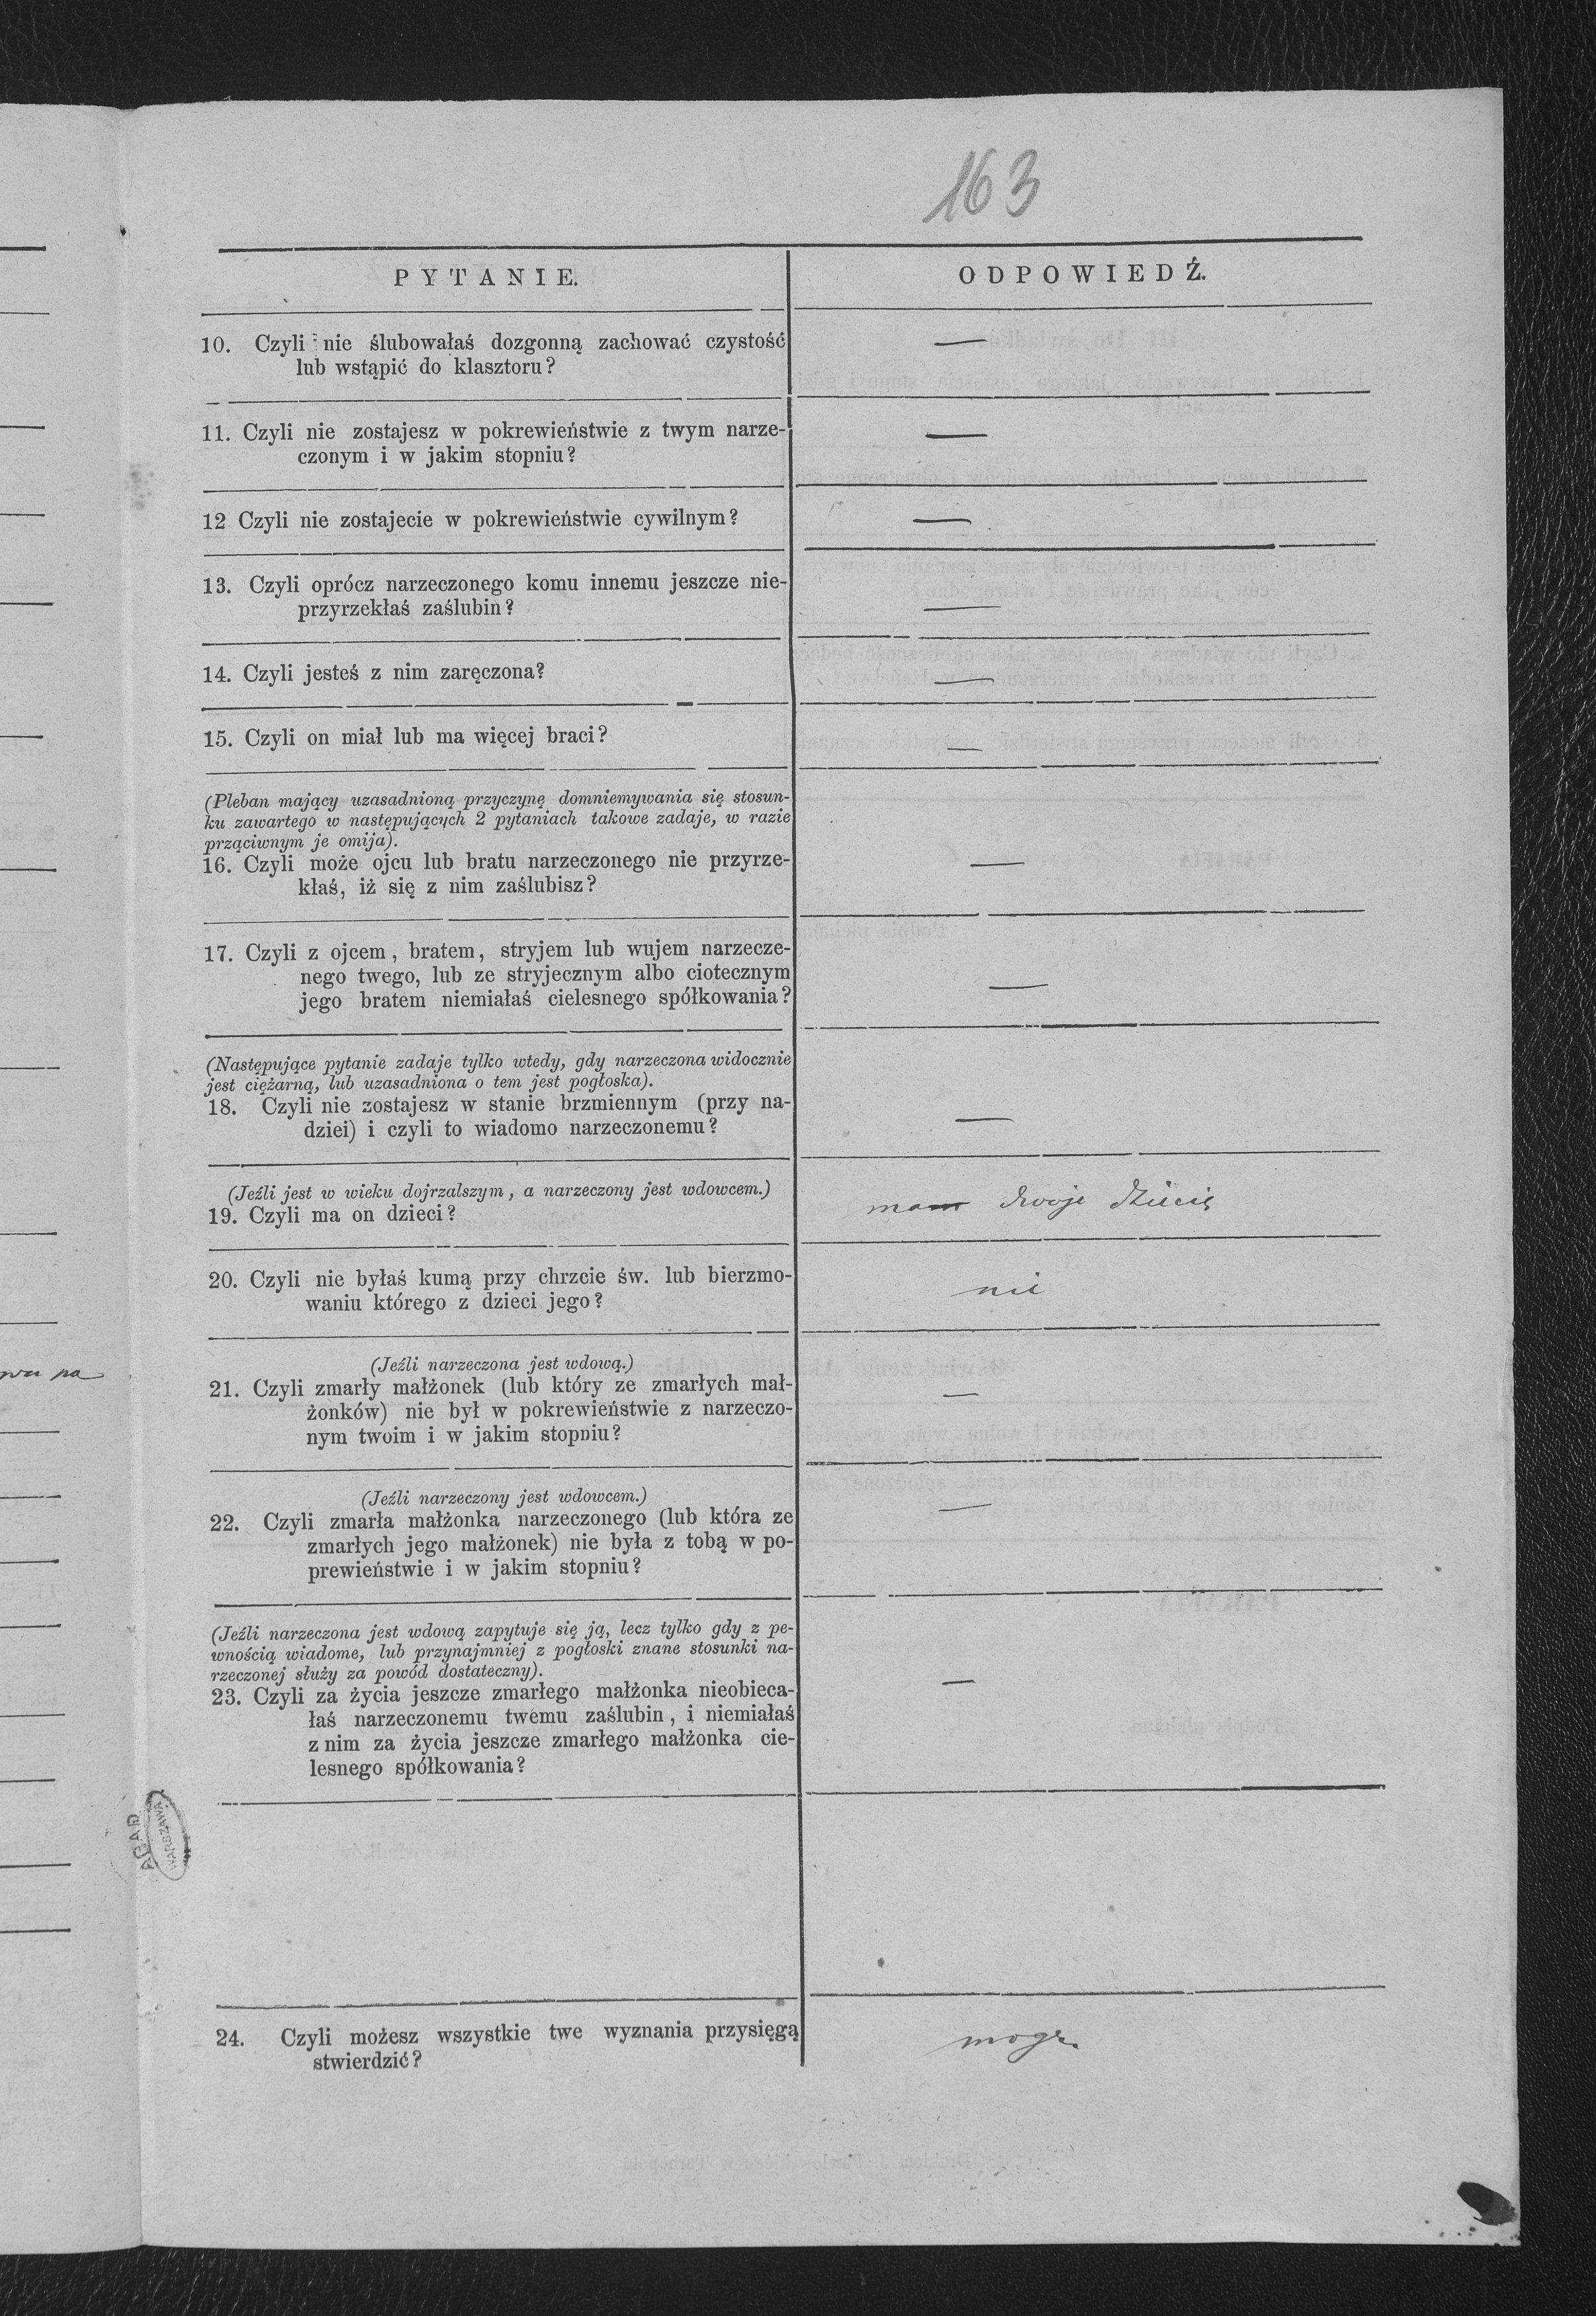 163
PYTANIE.
ODPOWIEDŹ.
10. Czyli nie ślubowałaś dozgonną zachować czystość
lub wstąpić do klasztoru?
—
11. Czyli nie zostajesz w pokrewieństwie z twym narze-
czonym i w jakim stopniu?
—
12 Czyli nie zostajecie w pokrewieństwie cywilnym?
—
13. Czyli oprócz narzeczonego komu innemu jeszcze nie-
przyrzekłaś zaślubin?
—
14. Czyli jesteś z nim zaręczona?
—
15. Czyli on miał lub ma więcej braci?
—
(Pleban mający uzasadnioną przyczynę domniemywania się stosun-
ku zawartego w następujących 2 pytaniach takowe zadaje, w razie
prząciwnym je omija).
16. Czyli może ojcu lub bratu narzeczonego nie przyrze-
kłaś, iż się z nim zaślubisz?
—
17. Czyli z ojcem, bratem, stryjem lub wujem narzecze-
nego twego, lub ze stryjecznym albo ciotecznym
jego bratem niemiałaś cielesnego spółkowania?
—
(Następujące pytanie zadaje tylko wtedy, gdy narzeczona widocznie
jest ciężarną, lub uzasadniona o tem jest pogłoska).
18. Czyli nie zostajesz w stanie brzmiennym (przy na-
dziei) i czyli to wiadomo narzeczonemu?
—
(Jeźli jest w wieku dojrzalszym, a narzeczony jest wdowcem.)
19. Czyli ma on dzieci?
mam dwoje dzieci
20. Czyli nie byłaś kumą przy chrzcie św. lub bierzmo-
waniu którego z dzieci jego?
nie
(Jeźli narzeczona jest wdową.)
21. Czyli zmarły małżonek (lub który ze zmarłych mał-
żonków) nie był w pokrewieństwie z narzeczo-
nym twoim i w jakim stopniu?
—
(Jeźli narzeczony jest wdowcem.)
22. Czyli zmarła małżonka narzeczonego (lub która ze
zmarłych jego małżonek) nie była z tobą w po-
prewieństwie i w jakim stopniu?
—
(Jeźli narzeczona jest wdową zapytuje się ją, lecz tylko gdy z pe-
wnością wiadome, lub przynajmniej z pogłoski znane stosunki na-
rzeczonej służy za powód dostateczny).
23. Czyli za życia jeszcze zmarłego małżonka nieobieca-
łaś narzeczonemu twemu zaślubin, i niemiałaś
z nim za życia jeszcze zmarłego małżonka cie-
lesnego spółkowania?
—
AGAD
WARSZAWA
24. Czyli możesz wszystkie twe wyznania przysięgą
stwierdzić?
mogę.